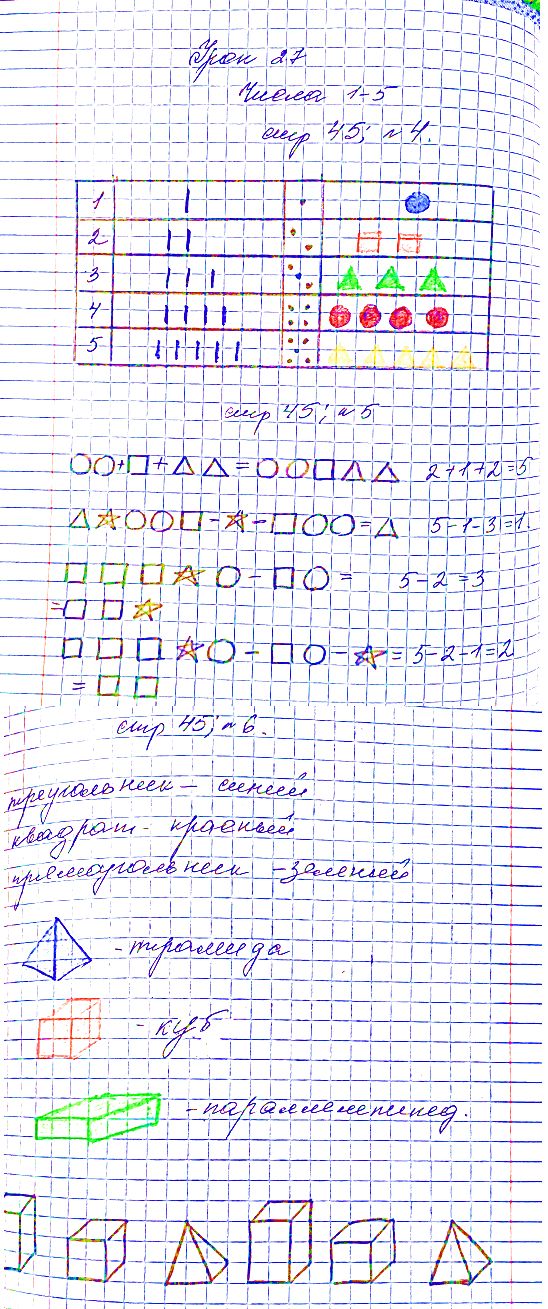 Урок 27
Числа 1-5
стр 45; №4.
1
2
3
4
5
стр 45; №5
2+1+2=5
5-1-3=1.
5-2=3
5-2-1=2
стр 45; №6.
треугольник - синий
квадрат - красный
прямоугольник - зеленый
- пирамида
- куб
- параллелепипед.